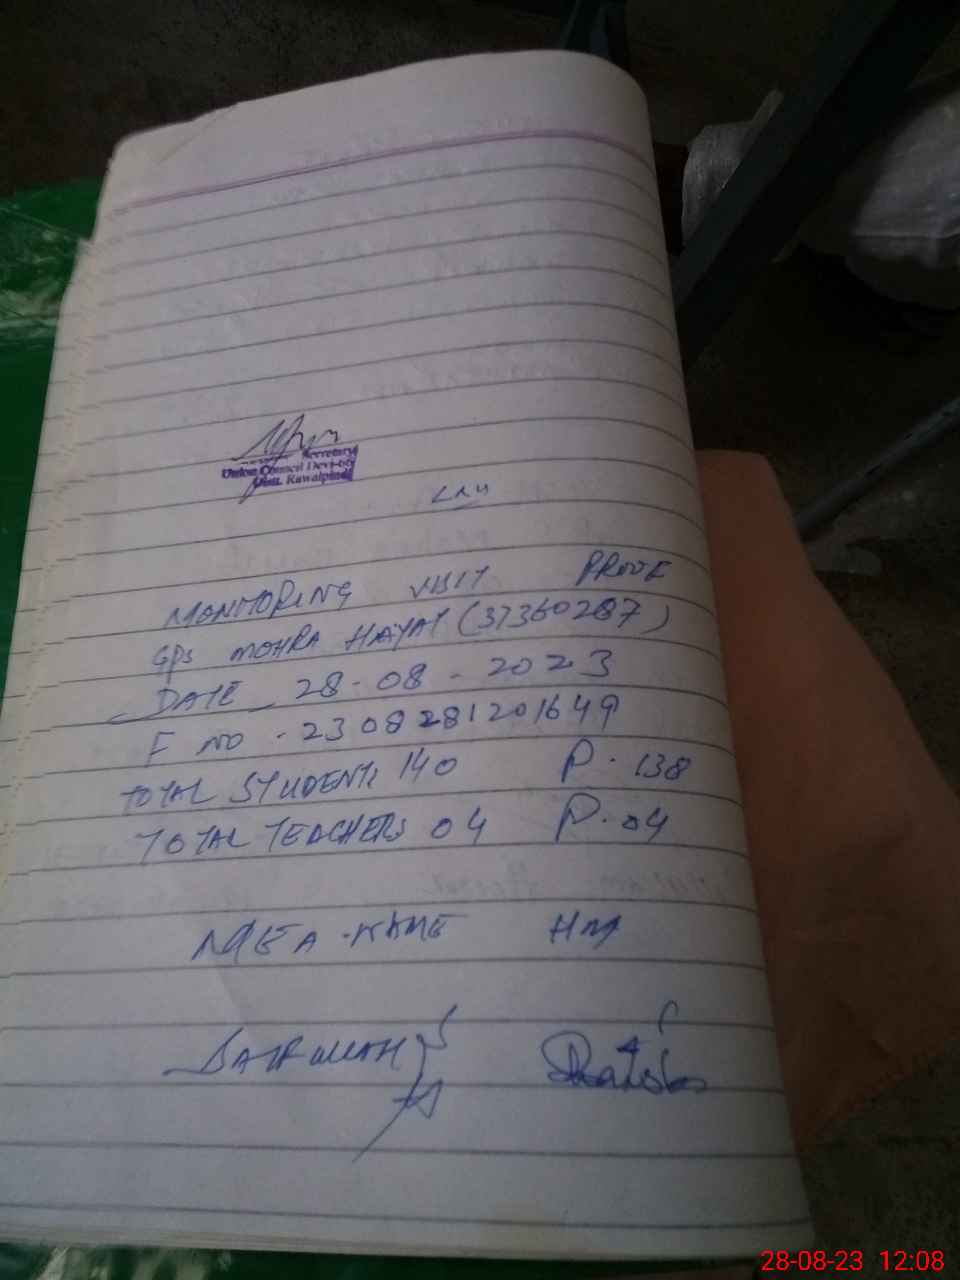 Secretary
Union Council Devi-66
Distt. Rawalpindi
MONITORING VISIT PROOF
GPS MOHRA HAYAT (37360287)
DATE - 28-08-2023
F NO - 2308281201649
TOTAL STUDENTS 140 P. 138
TOTAL TEACHERS 04 P. 04
MEA NAME HM
28-08-23 12:08